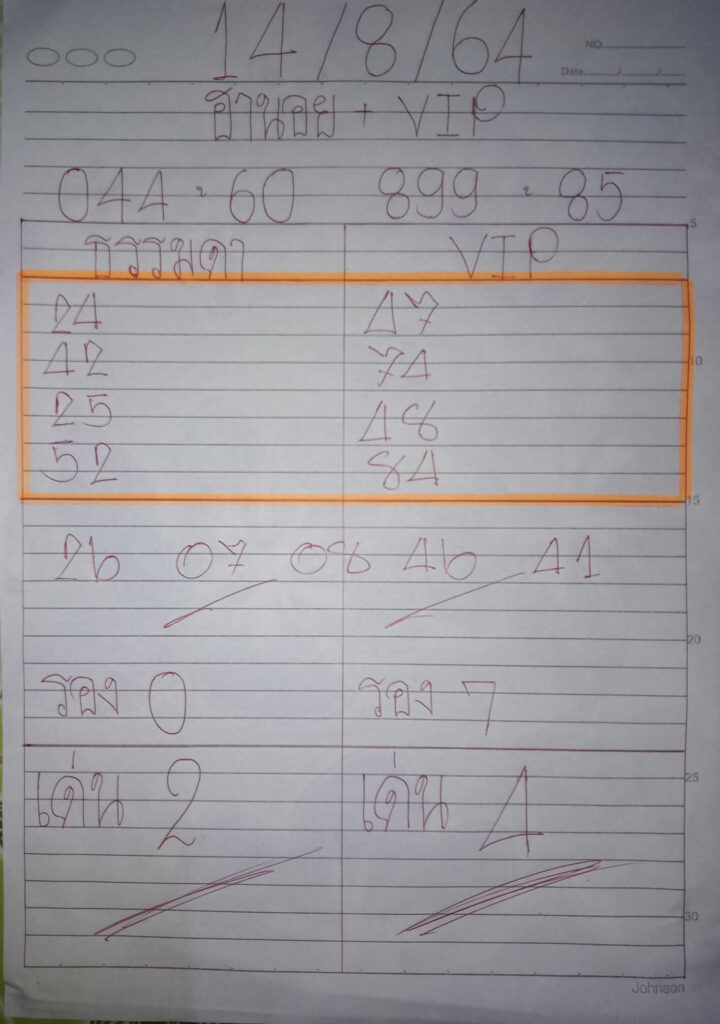 14/8/64
NO.
Date / /
ฮานอย + VIP
044 · 60 899 · 85
5
ธรรมดา VIP
24 47
42 74
10
25 48
52 84
15
26 07 08 46 41
20
รอง 0 รอง 7
25
เด่น 2 เด่น 4
30
Johnson